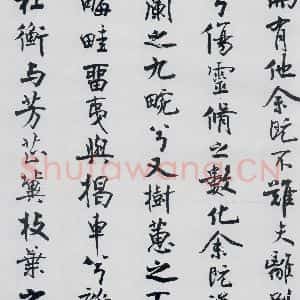 有他余既不難夫離別
兮傷靈脩之數化余既
蘭之九畹兮又樹蕙之
畮畦留夷與揭車兮雜
杜衡与芳芷冀枝葉之
Shufawang.CN